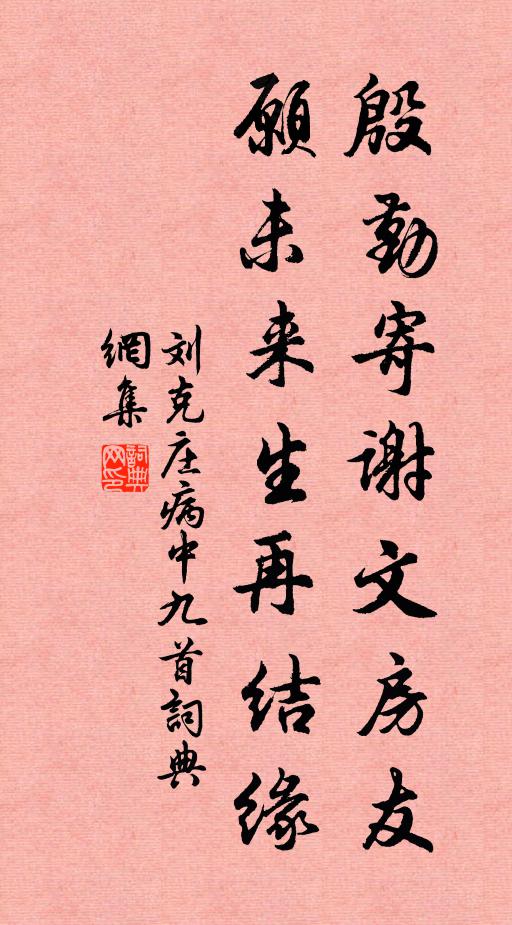 殷勤寄谢文房友
願未来生再结缘
刘克庄病中九首詞典
網集
詞典網印